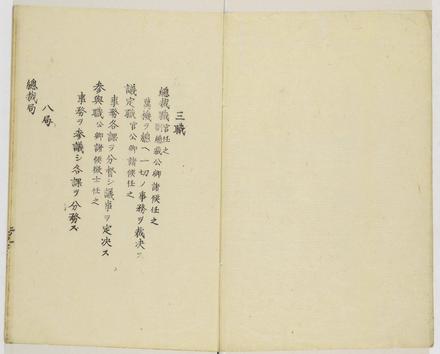 三職
總裁職 宮任之
副總裁公卿諸侯任之
萬機ヲ總ヘ一切ノ事務ヲ裁决ス
議定職 宮公卿諸侯任之
事務各課ヲ分督シ議事ヲ定决ス
参與職 公卿諸侯徴士任之
事務ヲ参議シ各課ヲ分務ス
八局
總裁局